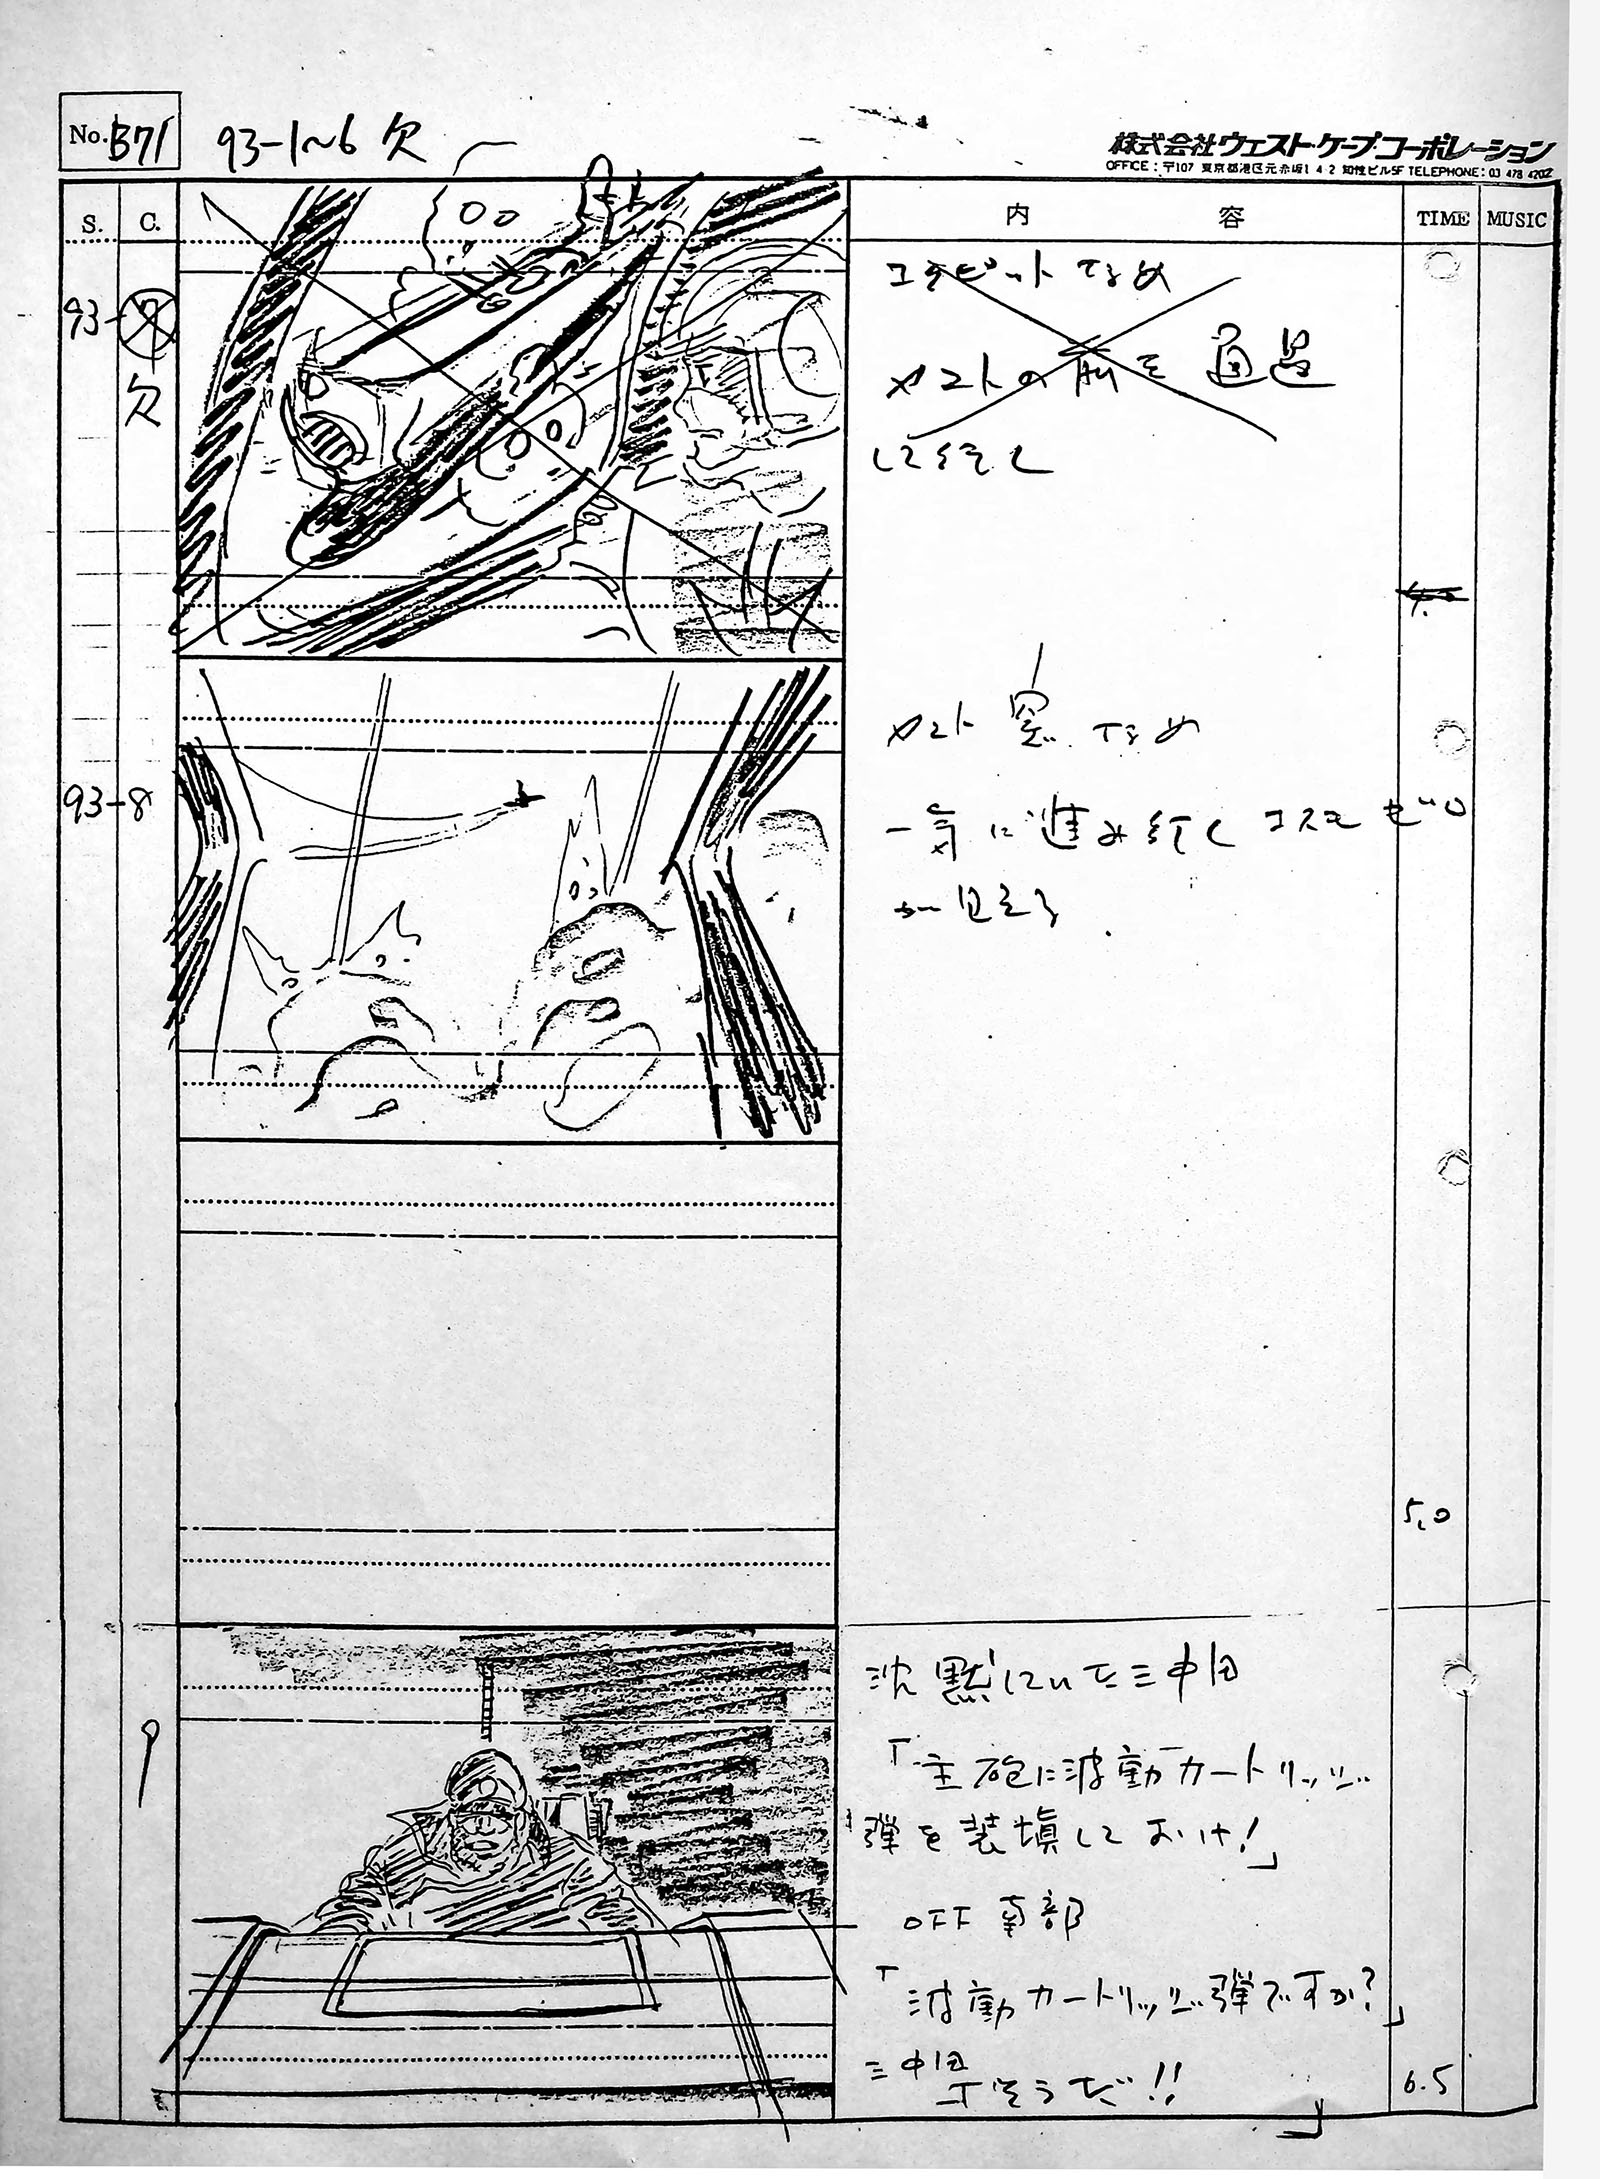 No. B71
93-1~6 欠
株式会社ウエスト・ケープ・コーポレーション
OFFICE:〒107 東京都港区元赤坂1 4-2 知性ビル5F TELEPHONE:03 478 4202
S. C. 内 容 TIME MUSIC
93-7
欠
コクピットなめ
メストの前を通過
して行く
4.0
93-8
メスト 窓 なめ
一気に進み行くコスモゼロ
が見える
5.0
9
沈黙していた三中田
「主砲に波動カートリッジ
弾を装填しておけ!」
OFF 南部
「波動カートリッジ弾ですか?」
三中田
「そうだ!!」
6.5